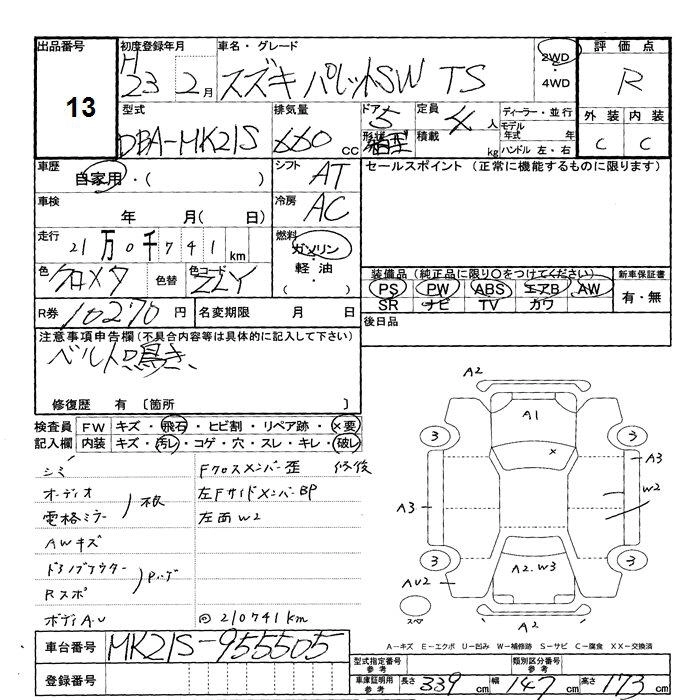 出品番号 13
初度登録年月 H 23 2月
車名・グレード スズキ パレットSW TS
2WD ・ 4WD
評価点 R
型式 DBA-MK21S
排気量 660 cc
ドア 5
形状
定員 4 人
積載 kg
ディーラー・並行
モデル年式 年
ハンドル 左・右
外装 C
内装 C
車歴 自家用・( )
シフト AT
セールスポイント (正常に機能するものに限ります)
車検 年 月( 日)
冷房 AC
走行 21万0千741km
燃料 ガソリン・軽油・( )
色 クロメタ 色替
色コード ZLY
装備品(純正品に限り○をつけてください)
PS PW ABS エアB AW
SR ナビ TV カワ
新車保証書 有・無
R券 10270円
名変期限 月 日
後日品
注意事項申告欄(不具合内容等は具体的に記入して下さい)
ベルト鳴き
修復歴 有〔箇所 〕
検査員 FW キズ・飛石・ヒビ割・リペア跡・×要
記入欄 内装 キズ・汚レ・コゲ・穴・スレ・キレ・破レ
シミ Fクロスメンバー歪 修復
オーディオ 左FサイドメンバーBP
電格ミラー 不良 左面W2
AWキズ
Rスポ
ボディA・U @210741km
車台番号 MK21S-955505
登録番号
A2
A1
×
3 3
A3
W2
A3
3 3
AU2
A2.W3
スペア
A2
A-キズ E-エクボ U-凹み W-補修跡 S-サビ C-腐食 XX-交換済
型式指定番号参考 類別区分番号参考
車庫証明用参考 長さ 339cm 幅 147cm 高さ 173cm